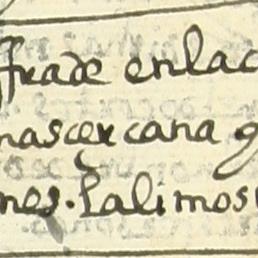 frade enlac
nascercana q
nes. Lalimos